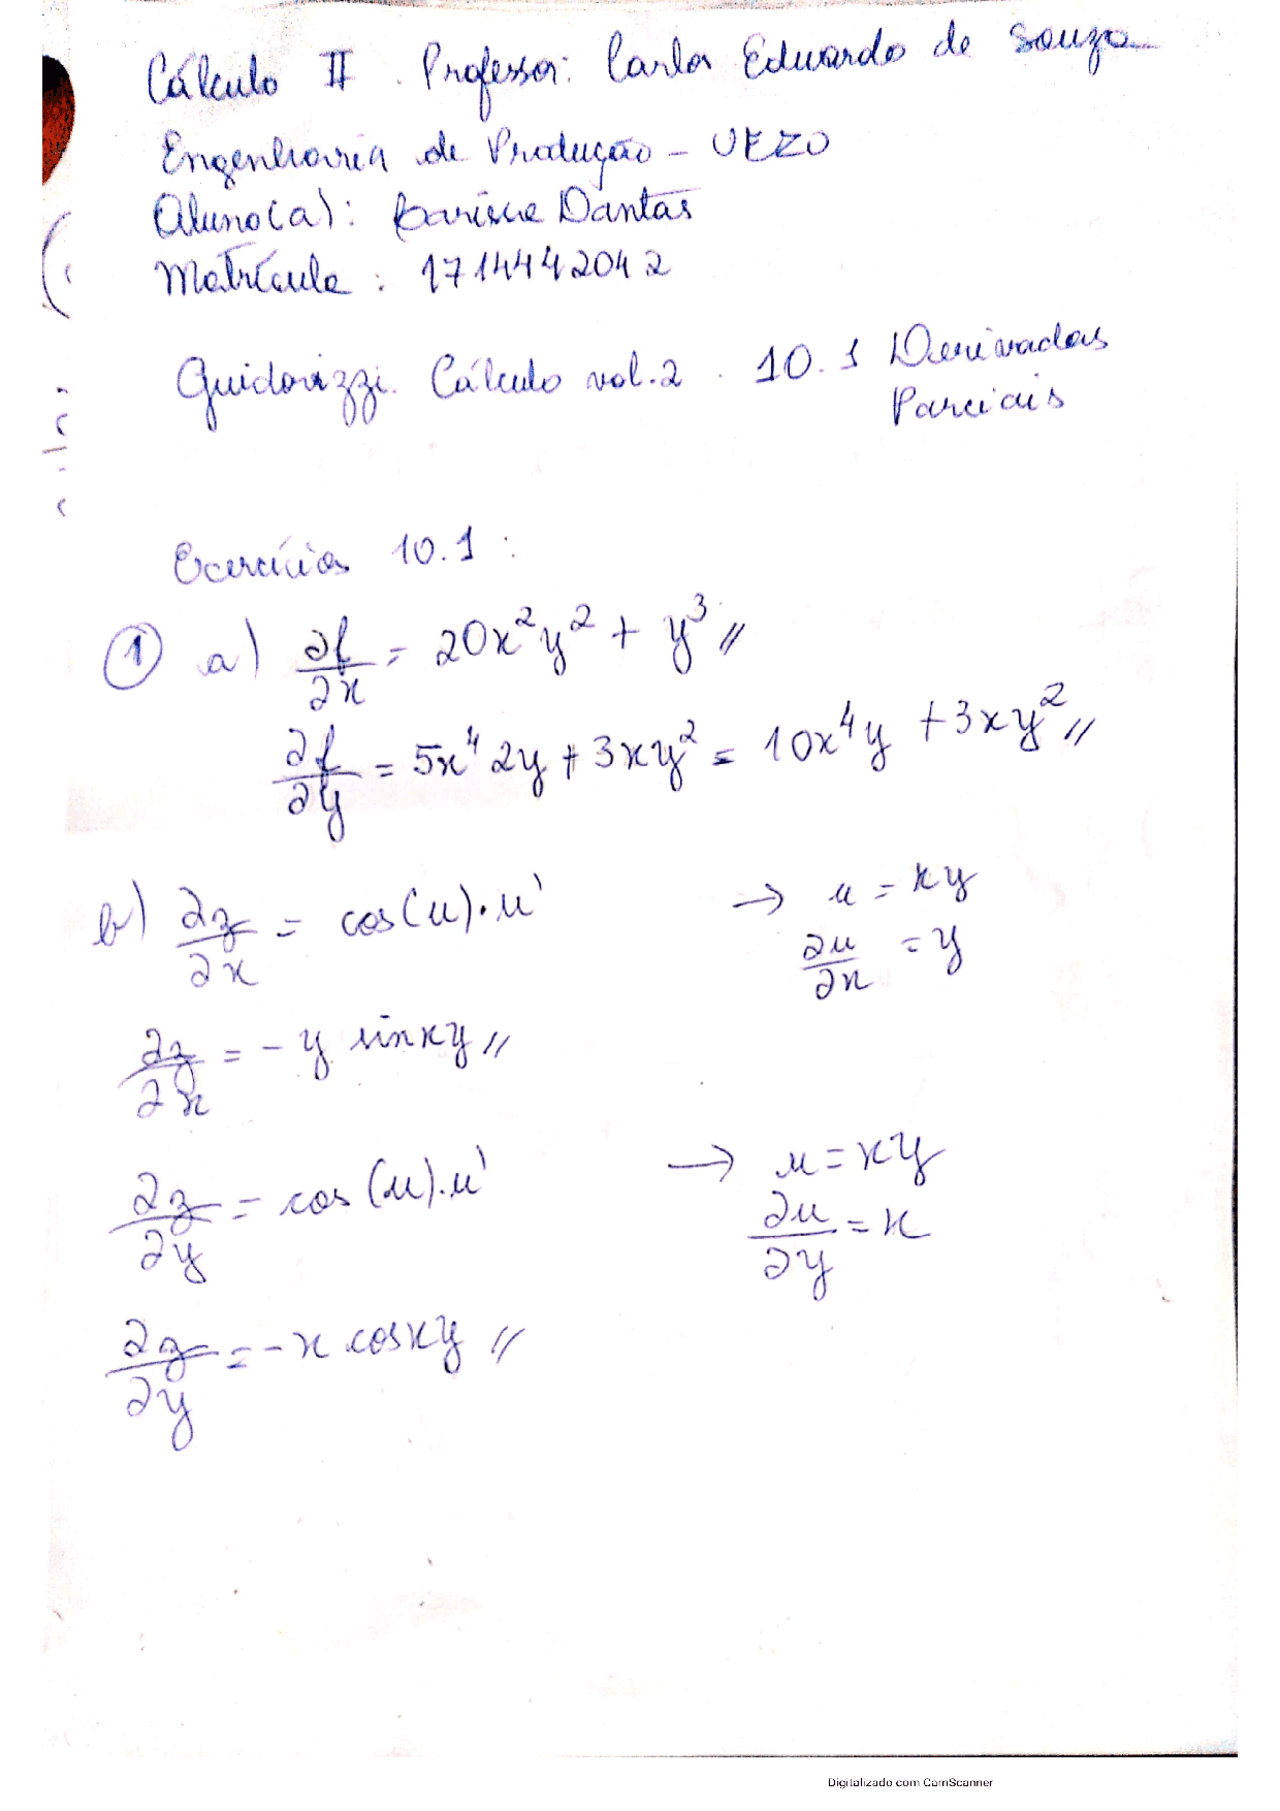 Cálculo II. Professor: Carlos Eduardo de Souza
Engenharia de Produção - UEZO
Aluno(a): Larisse Dantas
Matrícula: 1714442042
Guidorizzi. Cálculo vol.2. 10.1 Derivadas
Parciais
Exercícios 10.1:
① a) ∂f/∂x = 20x²y² + y³ //
∂f/∂y = 5x⁴2y + 3xy² = 10x⁴y + 3xy² //
b) ∂z/∂x = cos(u).u' → u = xy
∂u/∂x = y
∂z/∂x = -y sinxy //
∂z/∂y = cos(u).u' → u = xy
∂u/∂y = x
∂z/∂y = -x cosxy //
Digitalizado com CamScanner